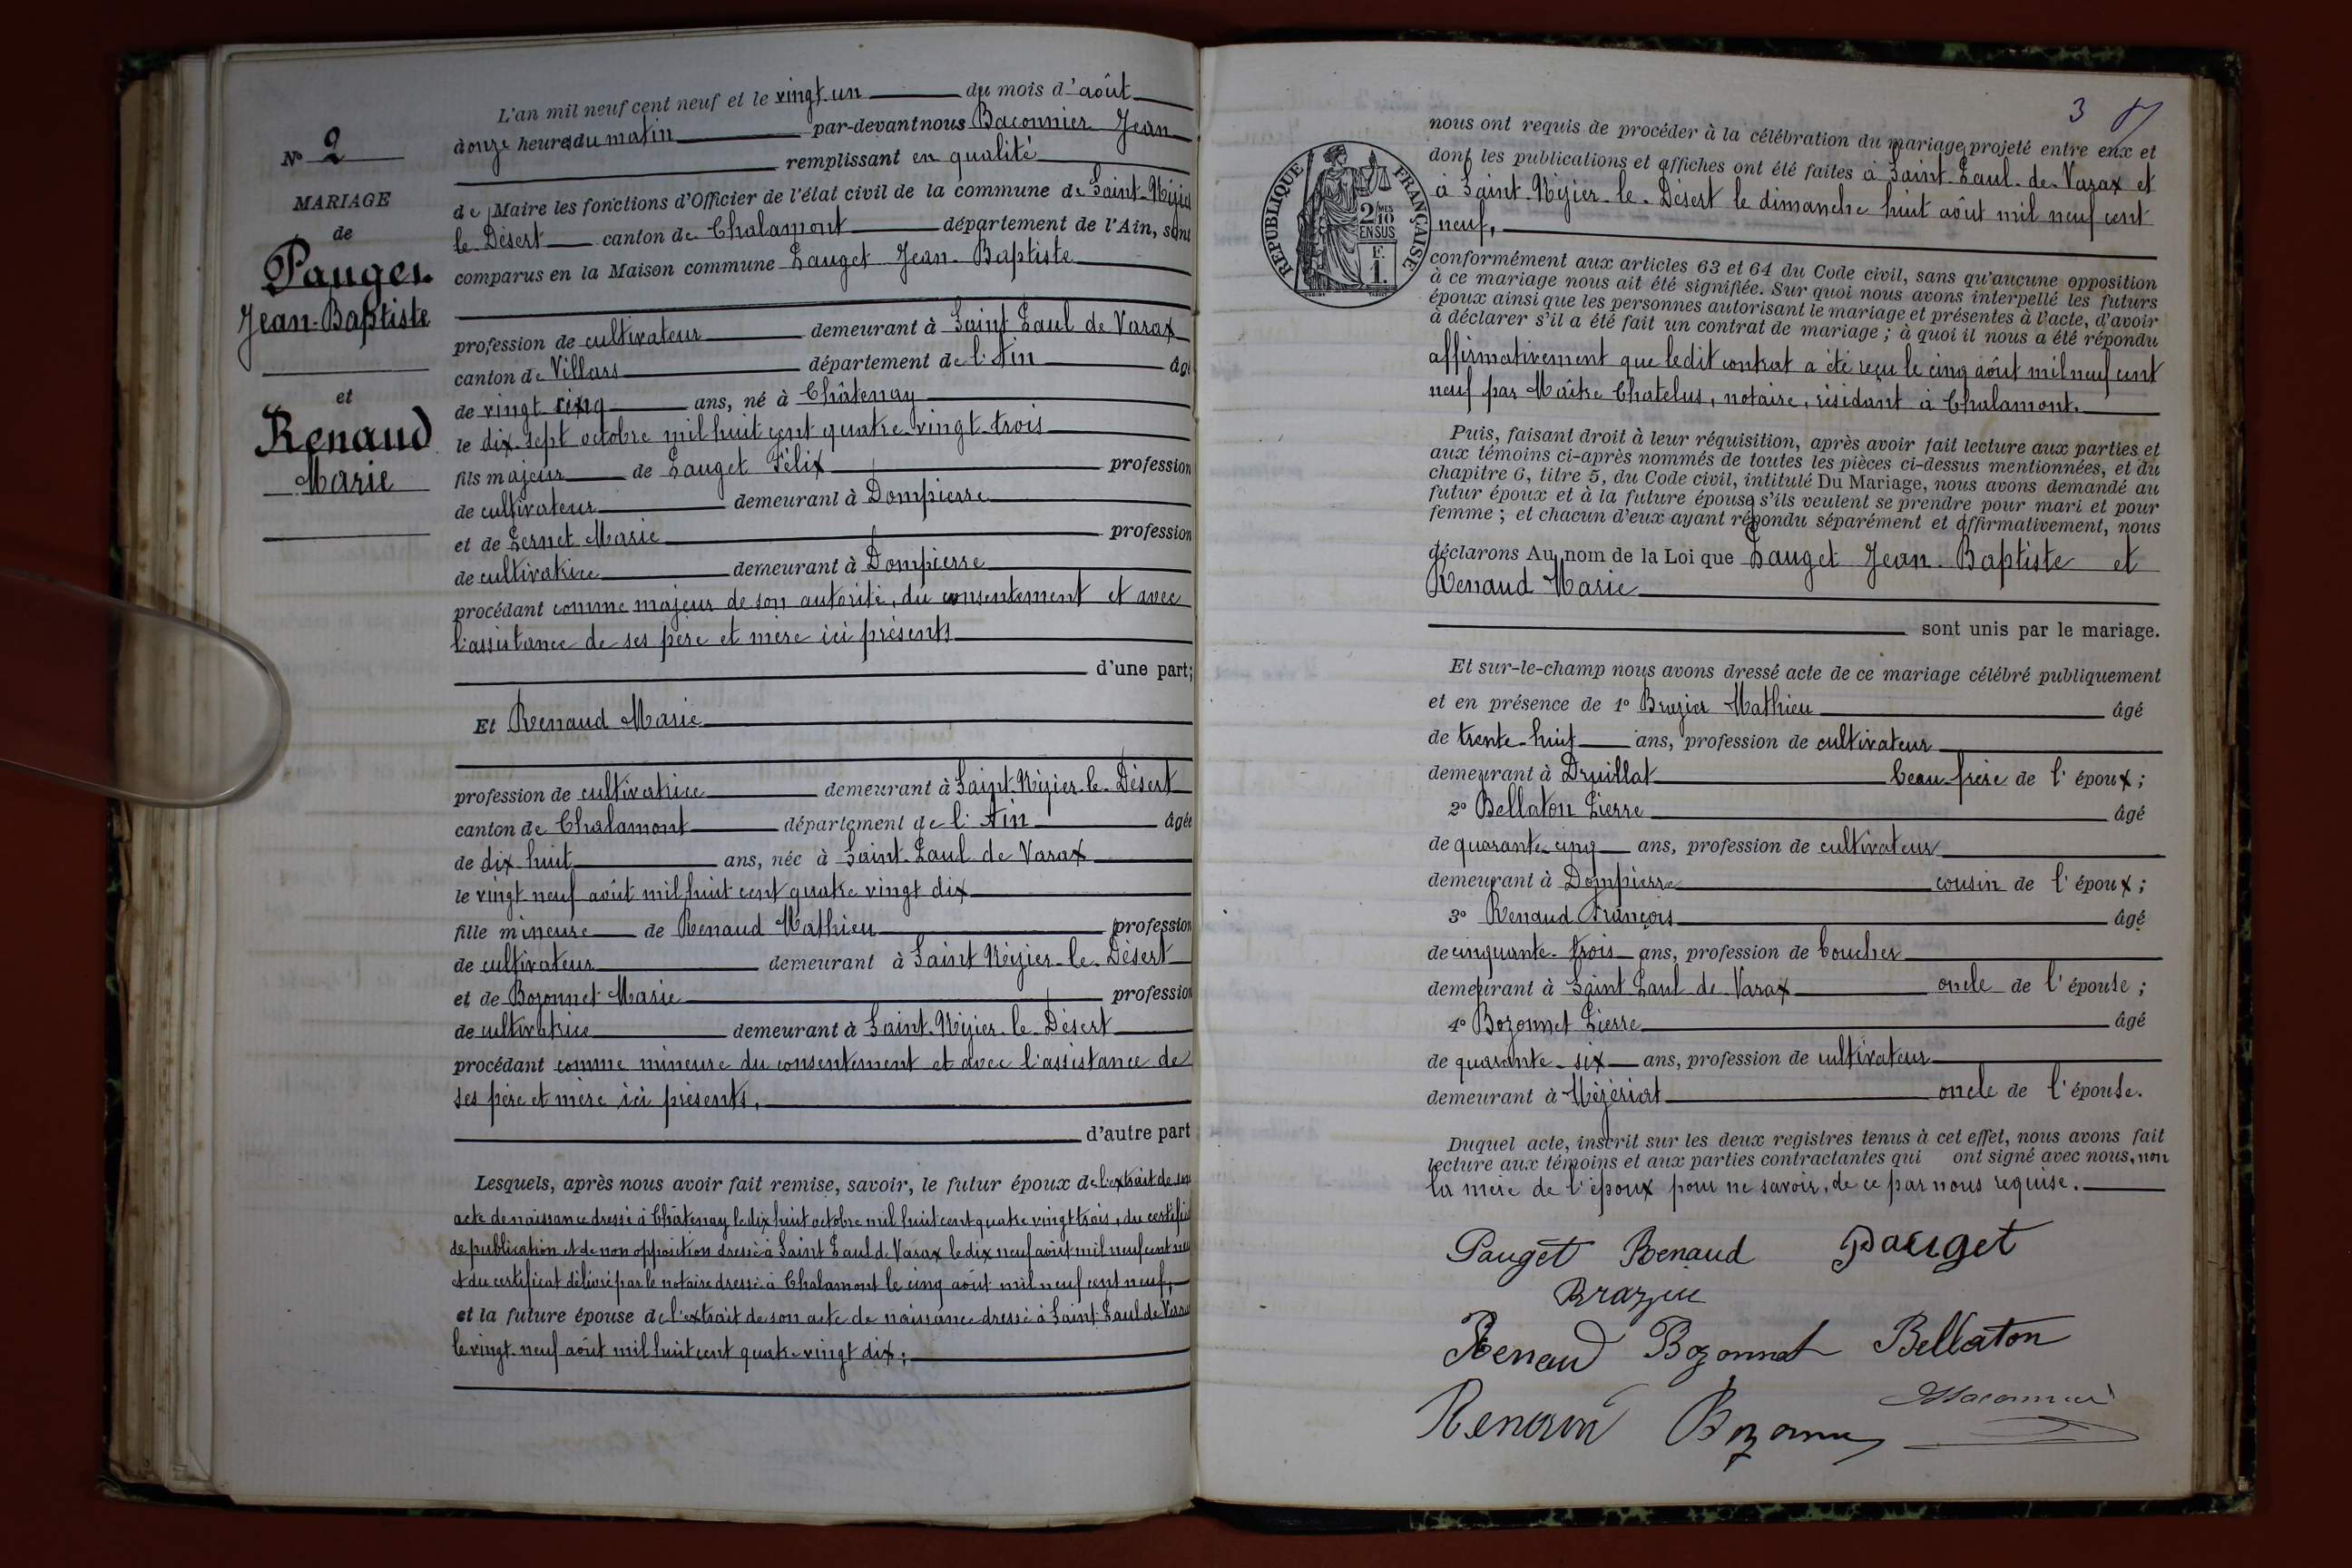 L'an mil neuf cent neuf et le vingt-un du mois d'août
à onze heures du matin par-devant nous Baconnier Jean
N° 2
remplissant en qualité
MARIAGE
de Maire les fonctions d'Officier de l'état civil de la commune de Saint-Nizier
de
le Désert canton de Chalamont département de l'Ain, sont
Pauget
comparus en la Maison commune Pauget Jean-Baptiste
Jean-Baptiste
profession de cultivateur demeurant à Saint Paul de Varax
canton de Villars département de l'Ain âgé
et
de vingt cinq ans, né à Châtenay
Renaud
le dix-sept octobre mil huit cent quatre-vingt-trois
Marie
fils majeur de Pauget Félix profession
de cultivateur demeurant à Dompierre
et de Pernet Marie profession
de cultivatrice demeurant à Dompierre
procédant comme majeur de son autorité, du consentement et avec
l'assistance de ses père et mère ici présents
d'une part;
Et Renaud Marie
profession de cultivatrice demeurant à Saint-Nizier-le-Désert
canton de Chalamont département de l'Ain âgée
de dix-huit ans, née à Saint-Paul de Varax
le vingt-neuf août mil huit cent quatre vingt dix
fille mineure de Renaud Mathieu profession
de cultivateur demeurant à Saint Nizier-le-Désert
et de Bozonnet Marie profession
de cultivatrice demeurant à Saint-Nizier-le-Désert
procédant comme mineure du consentement et avec l'assistance de
ses père et mère ici présents,
d'autre part
Lesquels, après nous avoir fait remise, savoir, le futur époux de l'extrait de son
acte de naissance dressé à Châtenay le dix huit octobre mil huit cent quatre vingt trois, du certificat
de publication et de non opposition dressé à Saint Paul de Varax le dix neuf août mil neuf cent neuf
et du certificat délivré par le notaire dressé à Chalamont le cinq août mil neuf cent neuf,
et la future épouse de l'extrait de son acte de naissance dressé à Saint-Paul de Varax
le vingt-neuf août mil huit cent quatre-vingt dix;
3
nous ont requis de procéder à la célébration du mariage projeté entre eux et
dont les publications et affiches ont été faites à Saint-Paul-de-Varax et
à Saint-Nizier-le-Désert le dimanche huit août mil neuf cent
neuf,
RÉPUBLIQUE FRANÇAISE
2/10 MES
EN SUS
F.
1.
conformément aux articles 63 et 64 du Code civil, sans qu'aucune opposition
à ce mariage nous ait été signifiée. Sur quoi nous avons interpellé les futurs
époux ainsi que les personnes autorisant le mariage et présentes à l'acte, d'avoir
à déclarer s'il a été fait un contrat de mariage; à quoi il nous a été répondu
affirmativement que ledit contrat a été reçu le cinq août mil neuf cent
neuf par Maître Chatelus, notaire, résidant à Chalamont.
Puis, faisant droit à leur réquisition, après avoir fait lecture aux parties et
aux témoins ci-après nommés de toutes les pièces ci-dessus mentionnées, et du
chapitre 6, titre 5, du Code civil, intitulé Du Mariage, nous avons demandé au
futur époux et à la future épouse s'ils veulent se prendre pour mari et pour
femme; et chacun d'eux ayant répondu séparément et affirmativement, nous
déclarons Au nom de la Loi que Pauget Jean-Baptiste et
Renaud Marie
sont unis par le mariage.
Et sur-le-champ nous avons dressé acte de ce mariage célébré publiquement
et en présence de 1° Brazier Mathieu âgé
de trente-huit ans, profession de cultivateur
demeurant à Druillat beau-frère de l'époux;
2° Bellaton Pierre âgé
de quarante-cinq ans, profession de cultivateur
demeurant à Dompierre cousin de l'époux;
3° Renaud François âgé
de cinquante-trois ans, profession de boucher
demeurant à Saint Paul de Varax oncle de l'épouse;
4° Bozonnet Pierre âgé
de quarante-six ans, profession de cultivateur
demeurant à Mézériat oncle de l'épouse.
Duquel acte, inscrit sur les deux registres tenus à cet effet, nous avons fait
lecture aux témoins et aux parties contractantes qui ont signé avec nous, non
la mère de l'époux pour ne savoir, de ce par nous requise.
Pauget Renaud Pauget
Brazier
Renaud Bozonnet Bellaton
Baconnier
Renaud Bozonnet